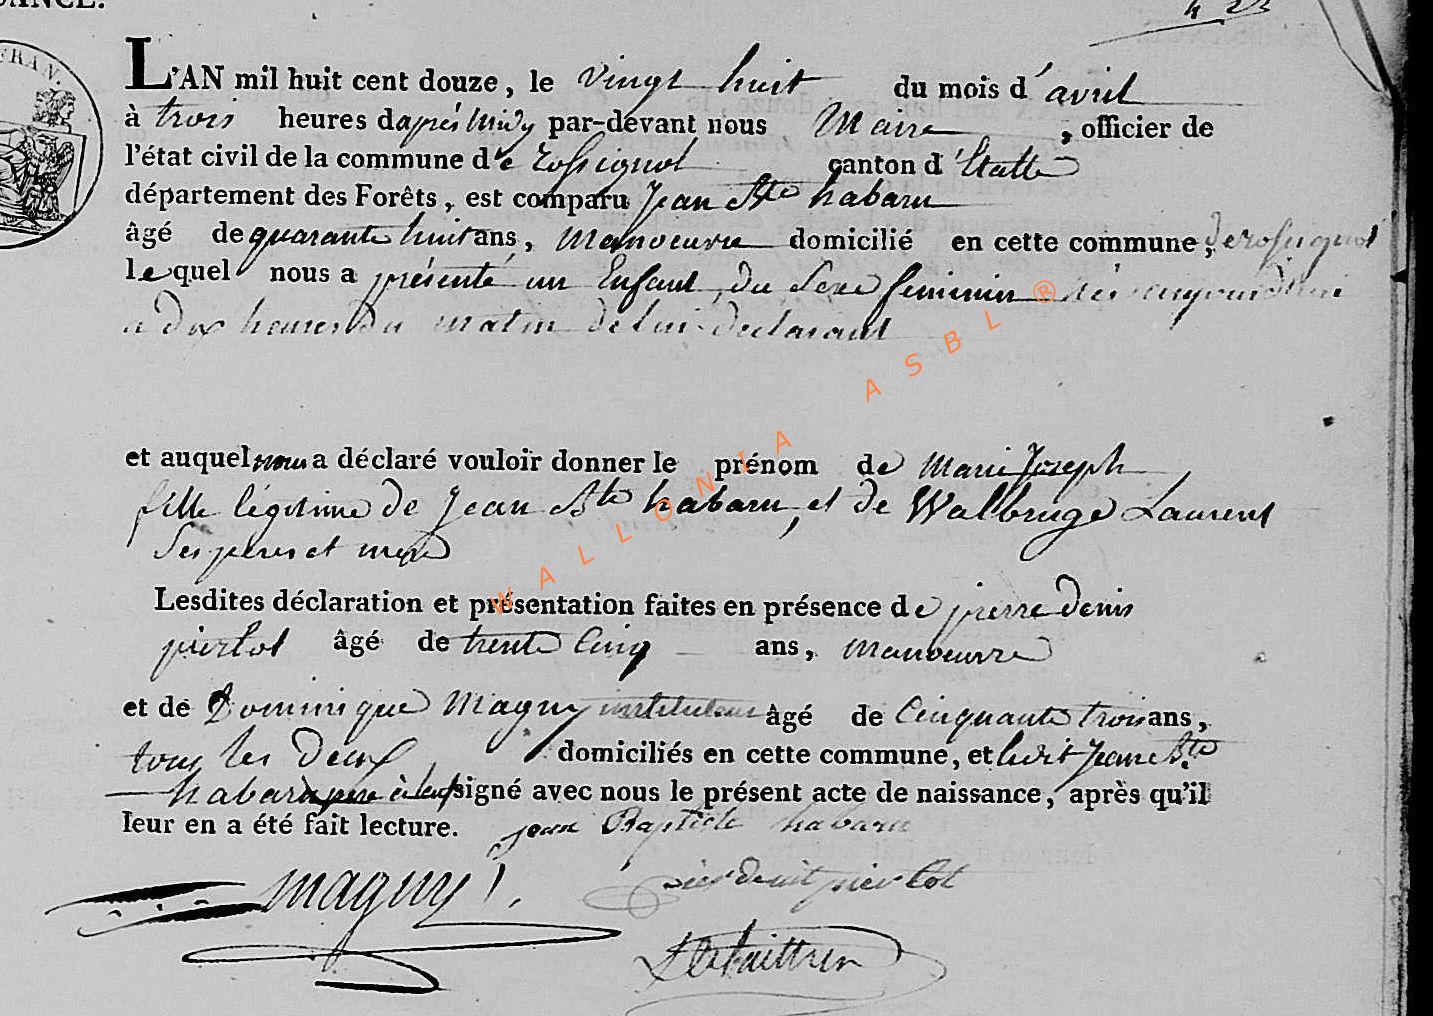 ANCE.
4 23
FRAN.
L'AN mil huit cent douze, le vingt huit du mois d'avril
à trois heures d'après midy par-devant nous Maire, officier de
l'état civil de la commune de rossignol canton d'Etalle
département des Forêts, est comparu Jean Bte habaru
âgé de quarante huit ans, Manoeuvre domicilié en cette commune, de rossignol
lequel nous a présenté un Enfant du Sexe feminin nés aujourd'hui
a dix heures du matin de lui declarant
et auquel nous a déclaré vouloir donner le prénom de Marie Joseph
fille légitime de Jean Bte habaru, et de Walbruge Laurent
Ses peres et mere
Lesdites déclaration et présentation faites en présence de pierre denis
pierlot âgé de trente Cinq ans, manoeuvre
et de Dominique Magny instituteur âgé de Cinquante trois ans,
tous les deux domiciliés en cette commune, et ledit Jean Bte
habaru pere signé avec nous le présent acte de naissance, après qu'il
leur en a été fait lecture. jean Baptiste habaru
magny
pierlot
WALLONIA ASBL ®